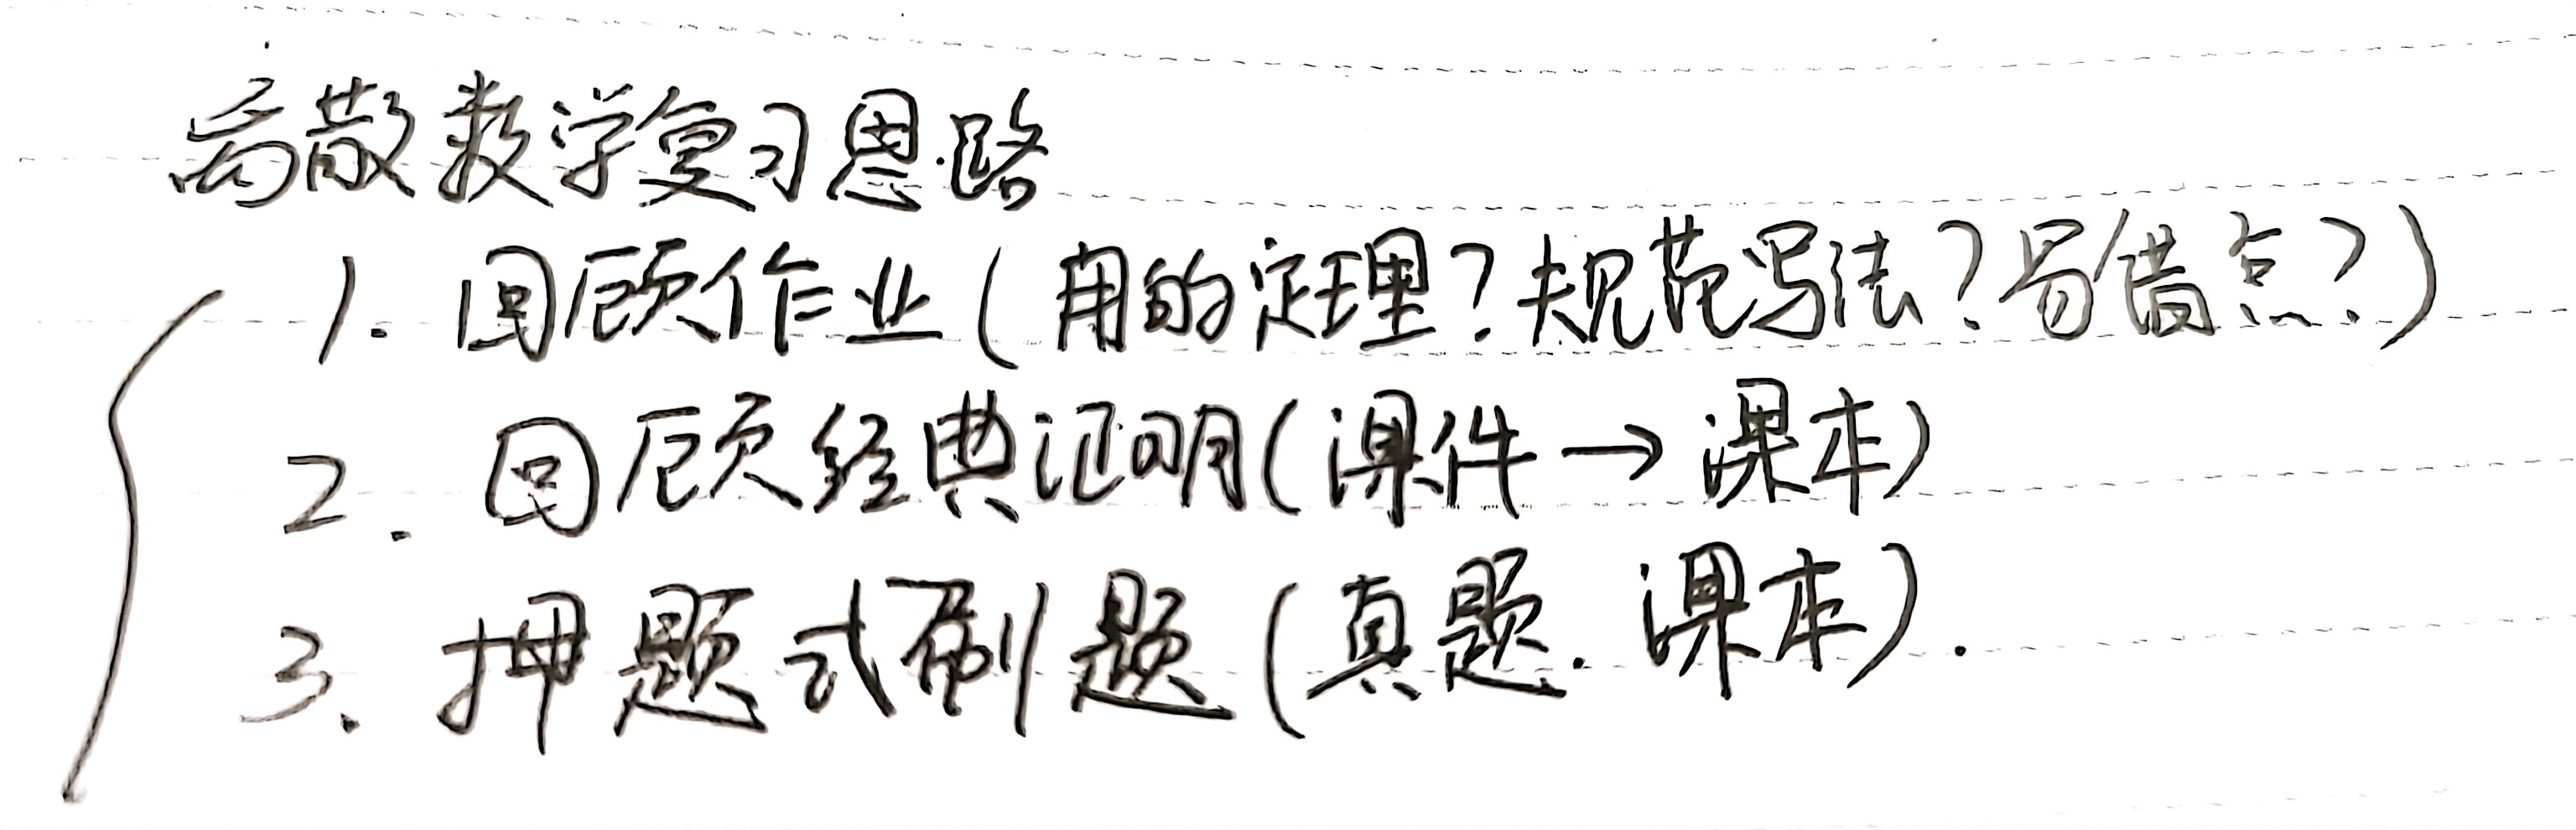 离散数学复习思路
1. 回顾作业(用的定理?规范写法?易错点?)
2. 回顾经典证明(课件→课本)
3. 押题式刷题(真题.课本).